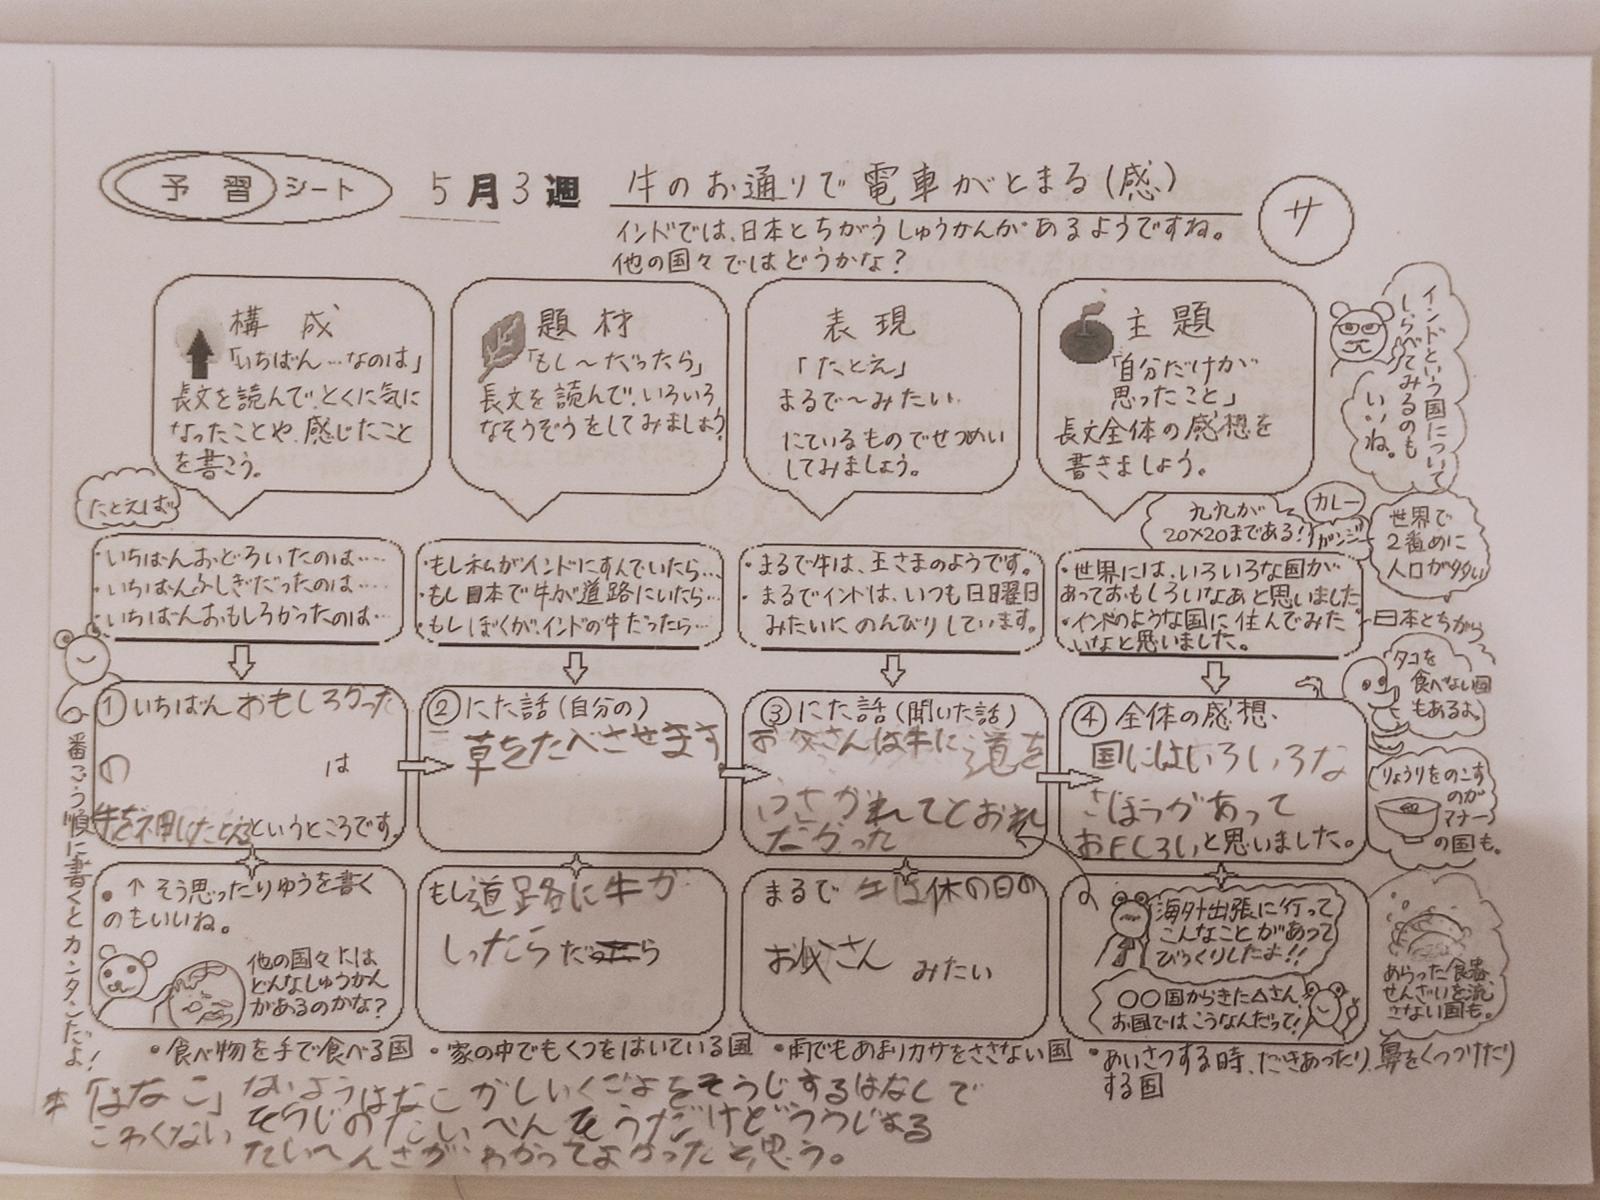 予習シート
5月3週
牛のお通りで電車がとまる(感)
サ
インドでは、日本とちがうしゅうかんがあるようですね。
他の国々ではどうかな?
構成
「いちばん…なのは」
長文を読んで、とくに気に
なったことや、感じたこと
を書こう。
題材
「もし〜だったら」
長文を読んで、いろいろ
なそうぞうをしてみましょう
表現
「たとえ」
まるで〜みたい
にているものでせつめい
してみましょう。
主題
「自分だけが
思ったこと」
長文全体の感想を
書きましょう。
インドという国について
しらべてみるのも
いいね。
たとえば
・いちばんおどろいたのは……
・いちばんふしぎだったのは……
・いちばんおもしろかったのは…
・もし私がインドにすんでいたら…
・もし日本で牛が道路にいたら…
・もしぼくが、インドの牛だったら…
・まるで牛は、王さまのようです。
・まるでインドは、いつも日曜日
みたいにのんびりしています。
・世界には、いろいろな国が
あっておもしろいなあと思いました
・インドのような国に住んでみた
いなと思いました。
九九が
20×20まである!
カレー
ガンジー
世界で
2番めに
人口が多い
日本とちがう
①いちばんおもしろかった
の は
というところです。
②にた話(自分の)
草をたべさせます
③にた話(聞いた話)
お父さんは牛に道を
だかった
④全体の感想、
国にはいろいろな
さほうがあって
おもしろいと思いました。
タコを
食べない国
もあるよ。
りょうりをのこす
のが
マナー
の国も。
番ごう順に書くとカンタンだよ!
・↑そう思ったりゆうを書く
のもいいね。
他の国々には
どんなしゅうかん
があるのかな?
もし道路に牛が
いたら
まるで牛は休の日の
お父さん みたい
海外出張に行って
こんなことがあって
びっくりしたよ!!
○○国からきた△さん、
お国ではこうなんだって!
あらった食器、
せんざいを流
さない国も。
・食べ物を手で食べる国
・家の中でもくつをはいている国
・雨でもあまりカサをささない国
・あいさつする時、だきあったり、鼻をくっつけたり
する国
*「はなこ」ないようはなこがしいくごやをそうじするはなしで
こわくないそうじのたいへんそうだけどうつうじよる
たいへんさがわかってよかったと思う。